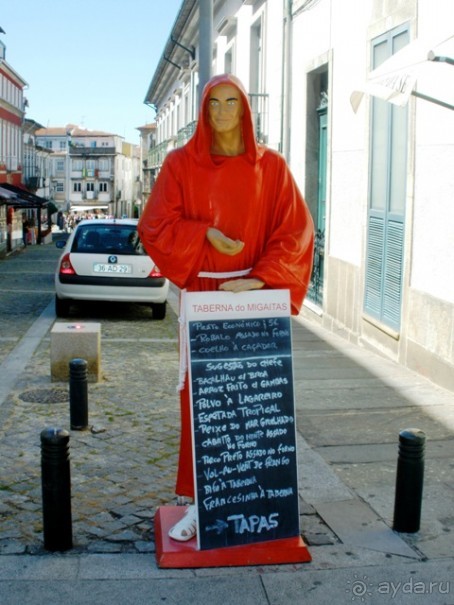 TABERNA do MIGAITAS
PRATO ECONÓMICO 5€
ASSADO NO FORNO
- COELHO À CAÇADOR
SUGESTÃO DO CHEFE
BACALHAU C/ BROA
ARROZ FRITO C/ GAMBAS
POLVO À LAGAREIRO
ESPETADA TROPICAL
PEIXE DO MAR GRELHADO
CABRITO DO MONTE ASSADO
NO FORNO
PORCO PRETO ASSADO NO FORNO
VOL-AU-VENT DE FRANGO
BIFE À TABERNA
FRANCESINHA À TABERNA
→ TAPAS
ayda.ru